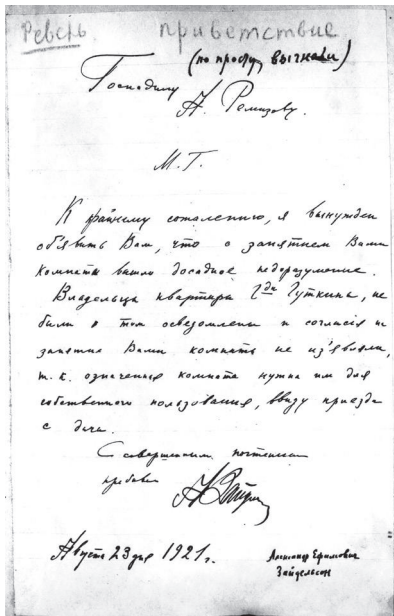 Ревель. приветствие
(по просту, выгнали)
Господину
А. Ремизову.
М. Г.
К крайнему сожалению, я вынужден
объявить Вам, что о занятием Вами
комнаты вышло досадное недоразумение.
Владельцы квартиры Г-да Гуткина, не
были о том осведомлены и согласия на
занятие Вами комнаты не из'явили,
т. к. означенная комната нужна им для
собственного пользования, ввиду приезда
с дачи.
С совершенным почтением
пребываю
Августа 23 дня 1921 г.
Александр Ефимович
Зайдельсон